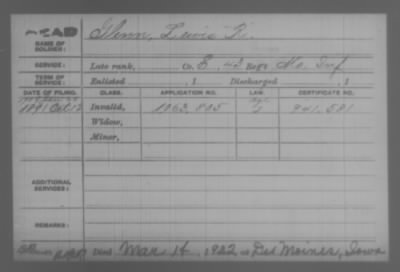 DEAD
NAME OF SOLDIER:
Glenn, Lewis R.
SERVICE: Late rank, Co. E, 42 Reg't Mo. Inf
TERM OF SERVICE: Enlisted , 1 Discharged , 1
DATE OF FILING. CLASS. APPLICATION NO. LAW. CERTIFICATE NO.
1891 Oct 12 Invalid, 1063,805 941.581
Widow,
Minor,
ADDITIONAL SERVICES:
REMARKS:
Died Mar 14, 1922 at Des Moines, Iowa